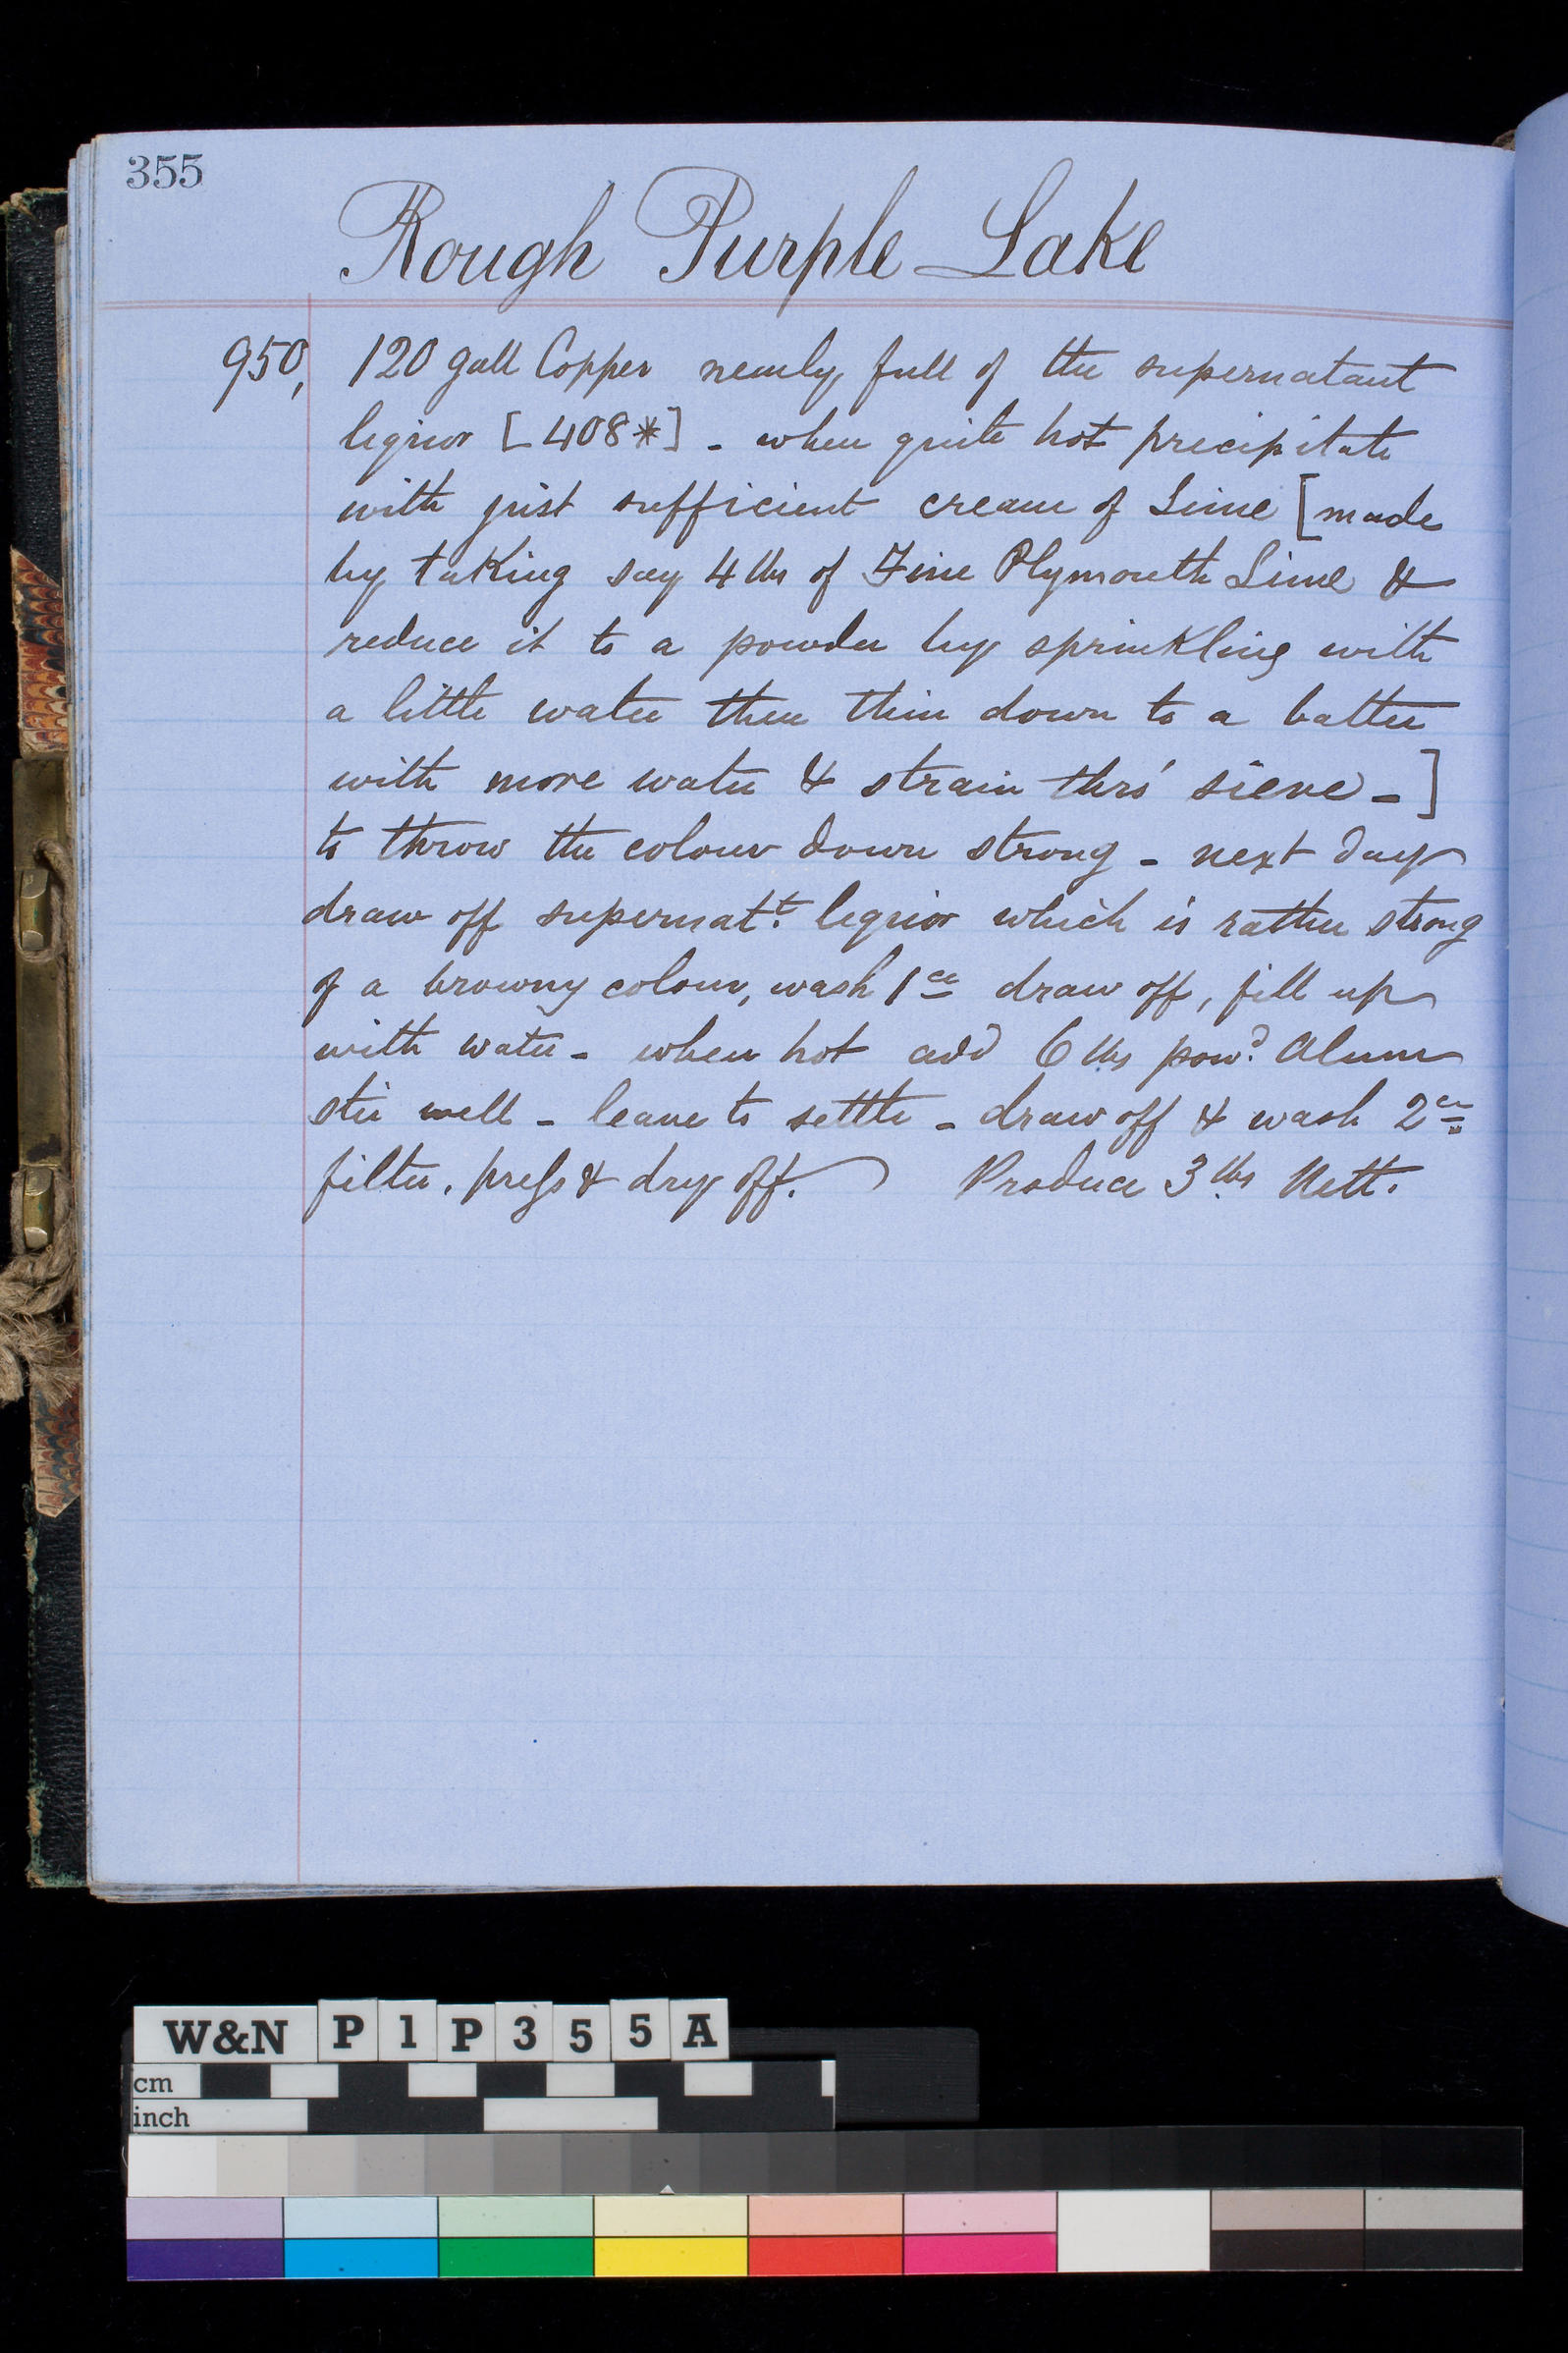 355
Rough Purple Lake
950, 120 gall Copper nearly full of the supernatant
liquor [408*] - when quite hot precipitate
with just sufficient cream of Lime [made
by taking say 4 lbs of Fine Plymouth Lime &
reduce it to a powder by sprinkling with
a little water then thin down to a batter
with more water & strain thro' sieve -]
to throw the colour down strong - next day
draw off supernatt. liquor which is rather strong
of a browny colour, wash 1ce draw off, fill up
with water - when hot add 6 lbs powd. Alum
stir well - leave to settle - draw off & wash 2ce
filter, press & dry off. Produce 3 lbs Nett.
W&N P1P355A
cm
inch